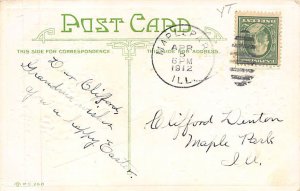 POST CARD
THIS SIDE FOR CORRESPONDENCE.
THIS SIDE FOR ADDRESS.
MAPLE PARK
APR
6 PM
1912
ILL.
YT
For Clifford
Grandma wish
you a happy Easter.
Clifford Denton
Maple Park
Ill